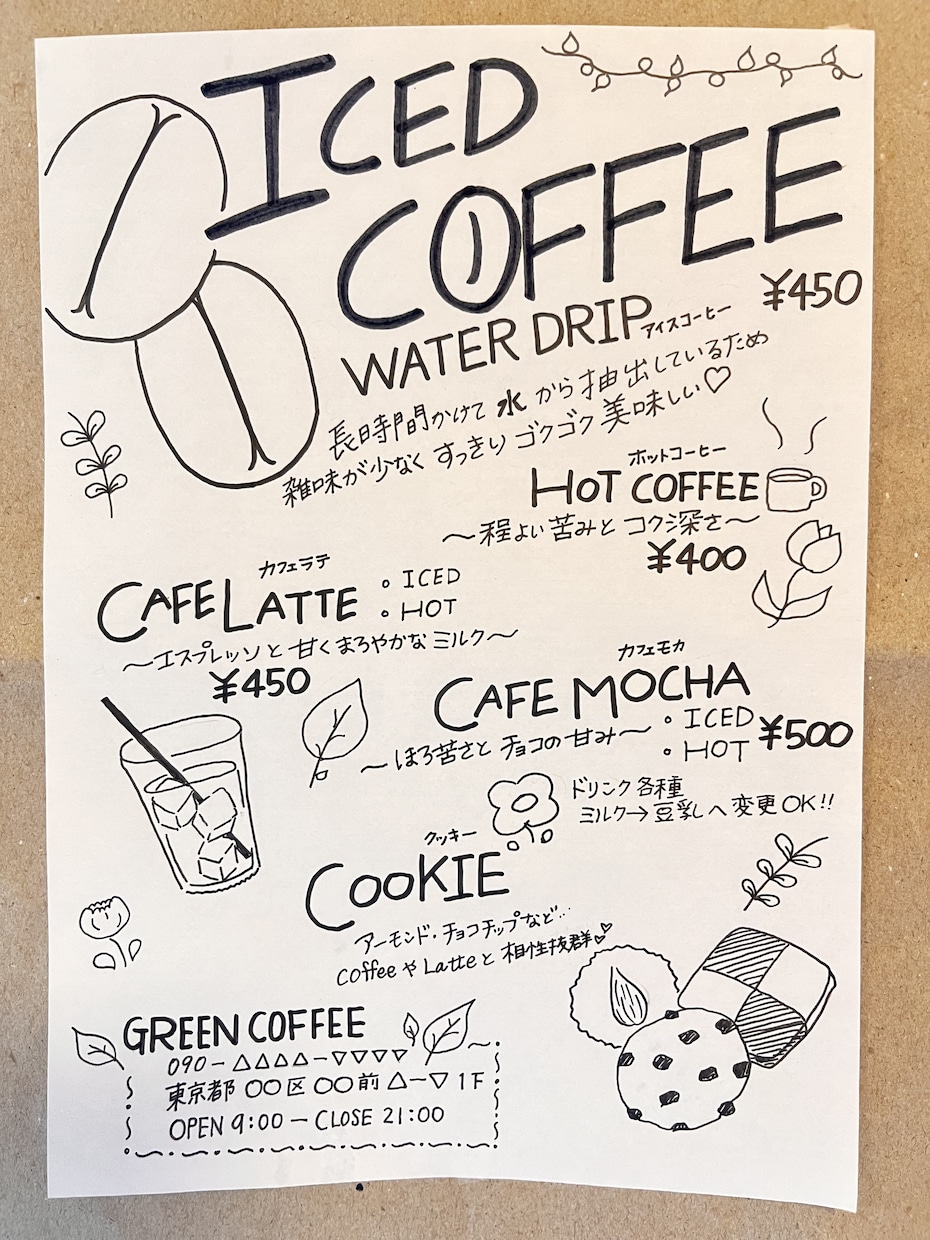 ICED
COFFEE
¥450
WATER DRIP アイスコーヒー
長時間かけて 水 から抽出しているため
雑味が少なく すっきり ゴクゴク 美味しい♡
ホットコーヒー
HOT COFFEE
〜程よい苦みと コク深さ〜
¥400
カフェラテ
CAFE LATTE
。ICED
。HOT
〜エスプレッソと 甘くまろやかな ミルク〜
¥450
カフェモカ
CAFE MOCHA
〜ほろ苦さと チョコの甘み〜
。ICED
。HOT
¥500
ドリンク各種
ミルク→豆乳へ変更OK!!
クッキー
COOKIE
アーモンド・チョコチップなど…
coffeeやLatteと相性抜群♡
GREEN COFFEE
090-△△△△-▽▽▽▽
東京都 〇〇区 〇〇前 △-▽ 1F
OPEN 9:00 - CLOSE 21:00